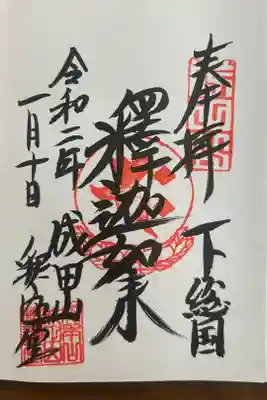 奉拝 下総国
釋迦如来
令和二年 成田山
一月十日 釈迦堂